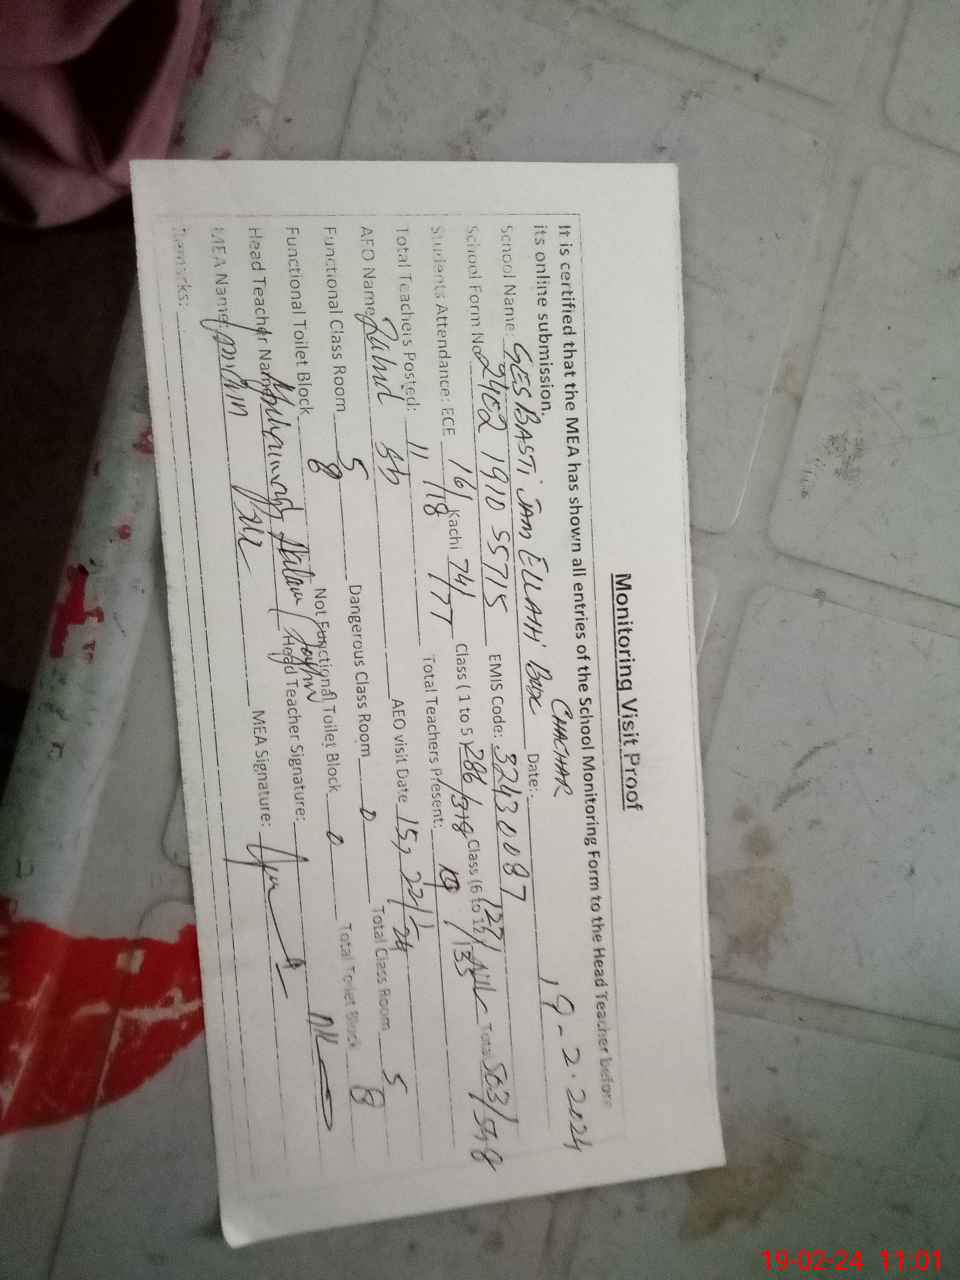 Monitoring Visit Proof
It is certified that the MEA has shown all entries of the School Monitoring Form to the Head Teacher before
its online submission.
CHACHAR
School Name: GES BASTi JAM ELLAHi Bux Date: 19-2.2024
School Form No. 2402 1910 55715 EMIS Code: 32430087
Students Attendance: ECE 16/18 Kachi 74/77 Class (1 to 5) 286/318 Class (6 to 12) 127/135 Total 503/548
Total Teachers Posted: 11 Total Teachers Present: 10
AEO Name: Zahid AEO visit Date 15, 22/1/24
Functional Class Room 5 Dangerous Class Room 0 Total Class Room 5
Functional Toilet Block 8 Not Functional Toilet Block 0 Total Toilet Block 8
Head Teacher Name: Head Teacher Signature:
MEA Name: MEA Signature:
Remarks:
19-02-24 11:01